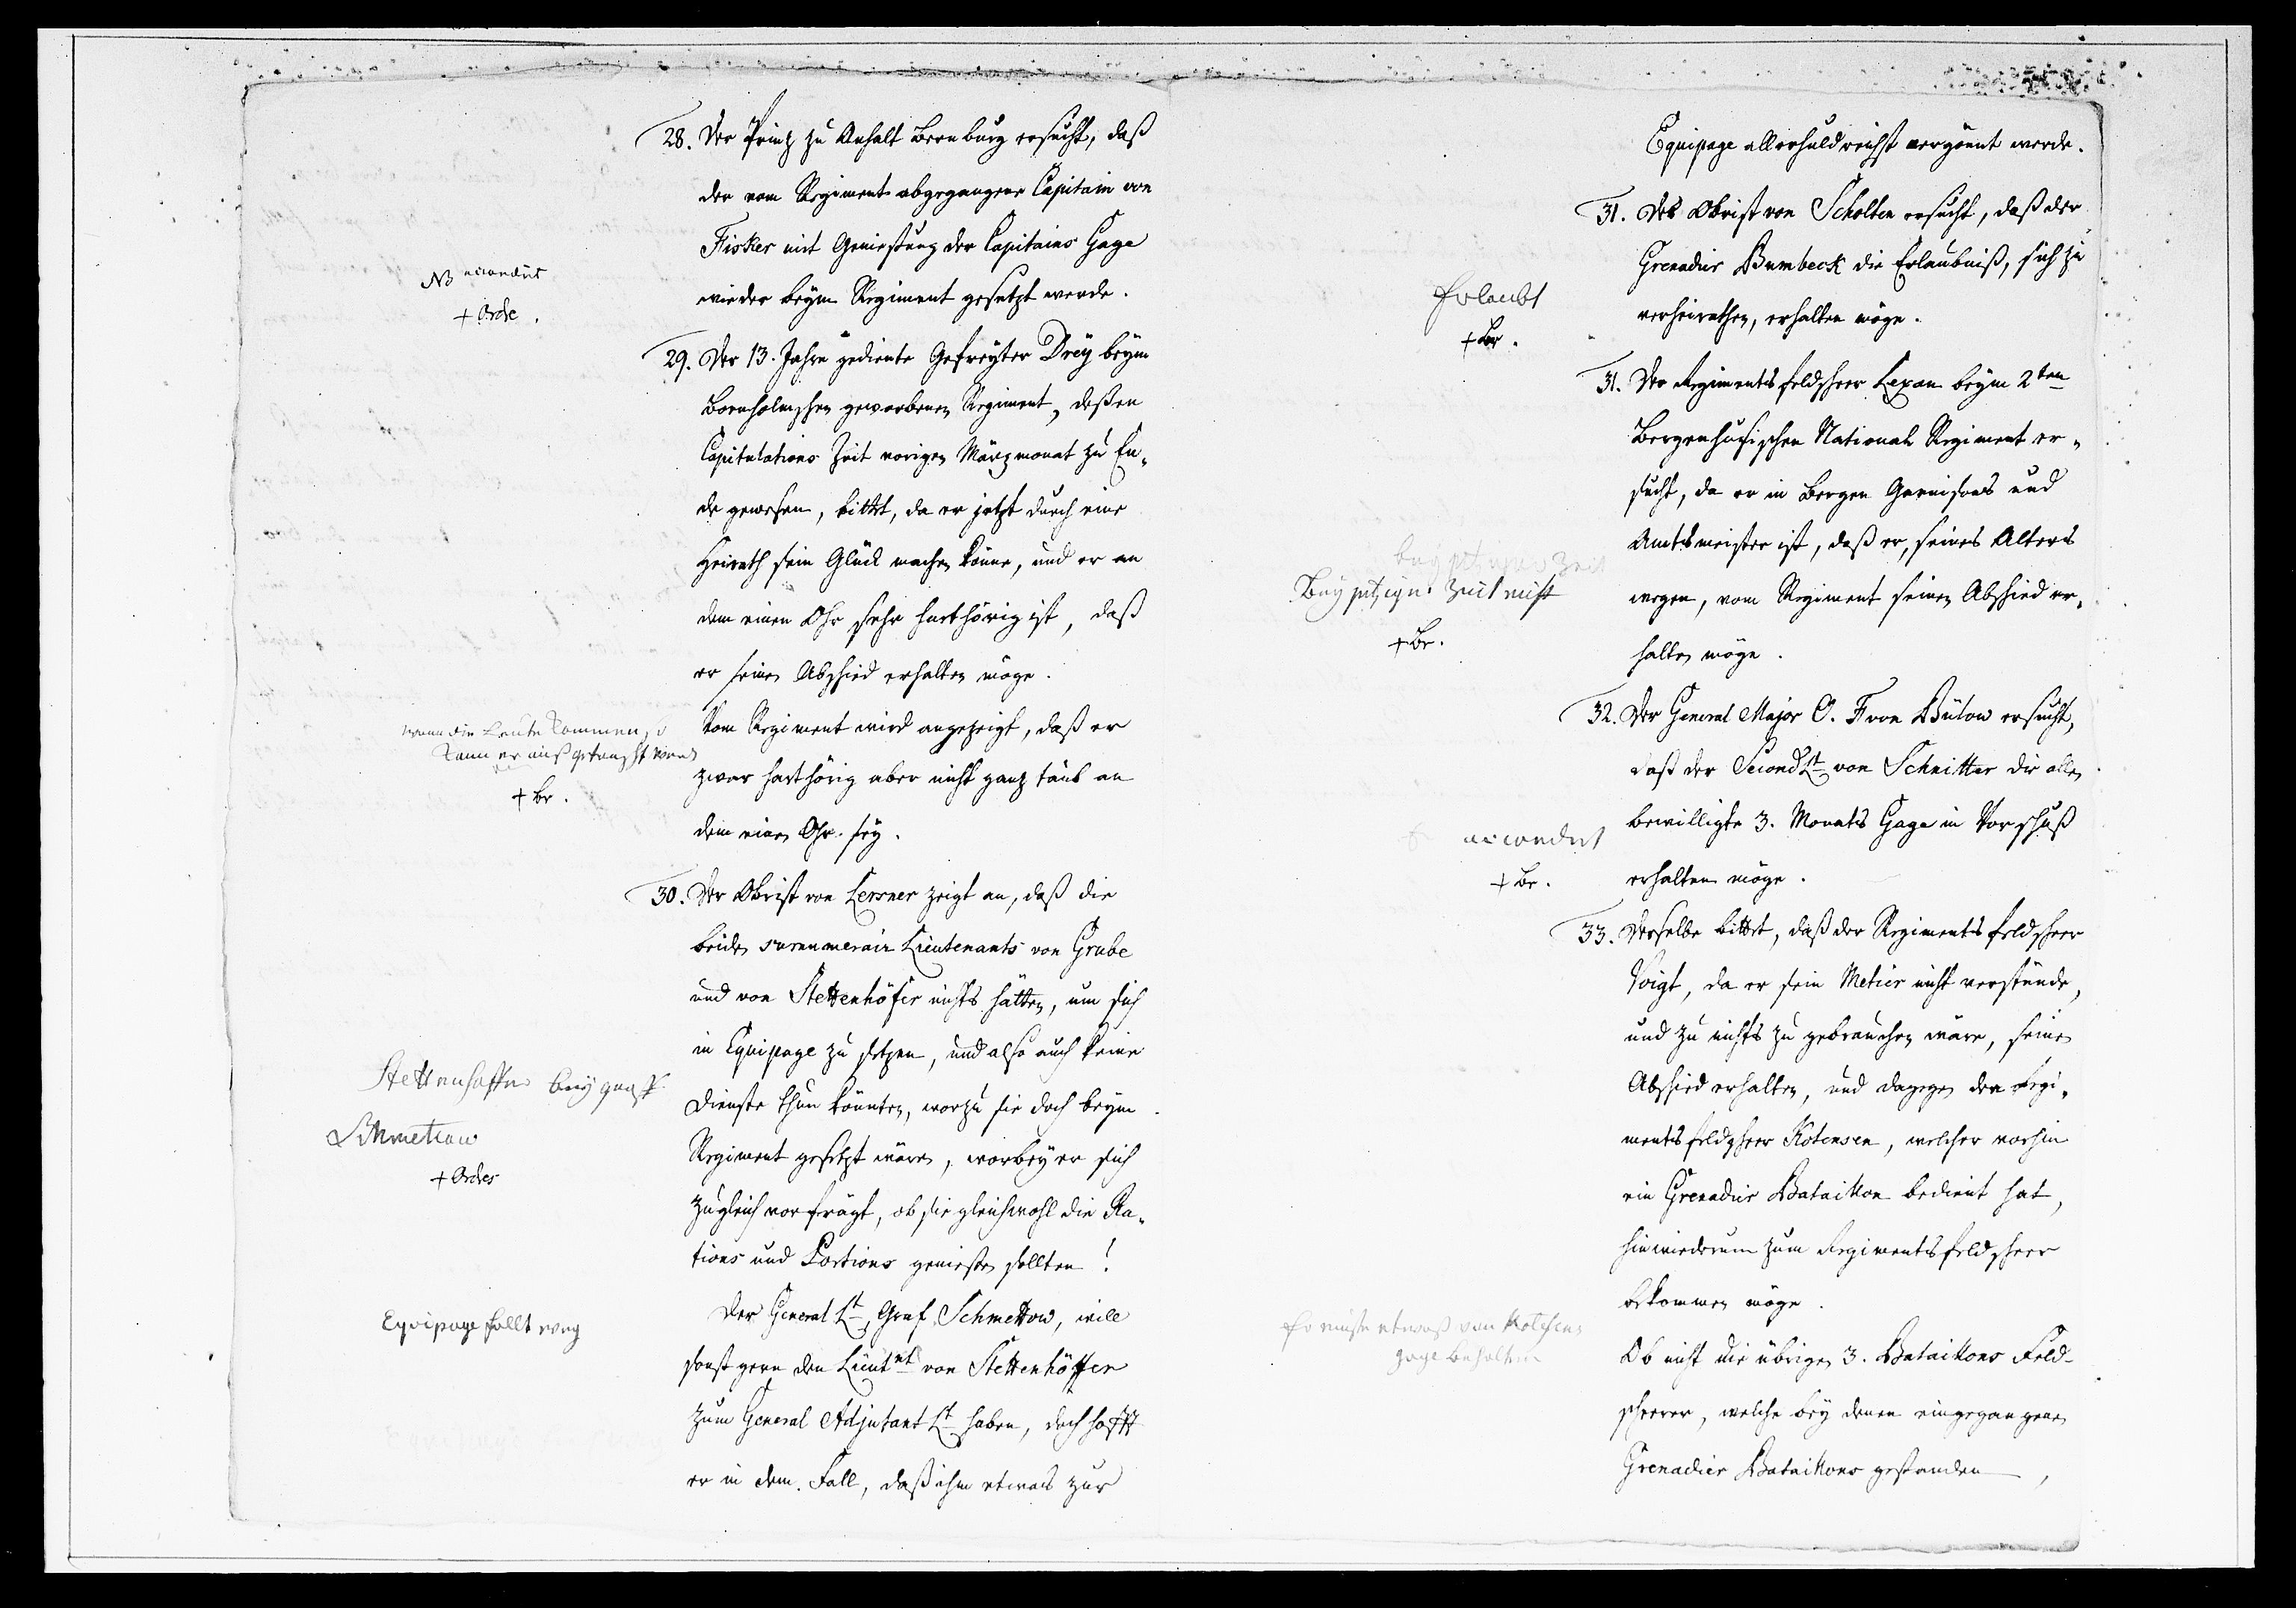 28. Der Prinz zu Anhalt Bernburg ersucht, daß
der vom Regiment abgegangene Capitain von
Fisker mit Genießung der Capitains Gage
wieder beym Regiment gesetzt werde.
NB accordirt
+ Ordre.
29. Der 13. Jahre gediente Gefreyter Drey beym
Bornholmschen geworbenen Regiment, deßen
Capitulations Zeit vorigen Märzmonat zu En-
de gewesen, bittet, da er jetzt durch eine
Heirath sein Glück machen könne, und er an
dem einen Ohr sehr harthörig ist, daß
er seinen Abschied erhalten möge.
Vom Regiment wird angezeigt, daß er
zwar harthörig aber nicht ganz taub an
dem einen Ohr sey.
wenn die Leute kommen,
kann er auß getauscht werd
+ Br.
30. Der Obrist von Lersner zeigt an, daß die
beiden surnumerair Lieutenants von Grube
und von Stettenhöfer nichts hätten, um sich
in Equipage zu setzen, und also auch keine
Dienste thun könnten, worzu sie doch beym
Regiment gesetzt wären, worbey er sich
zugleich vorfrägt, ob sie gleichwohl die Ra-
tions und Portions genießen sollten!
Stettenhoffer bey graff
Schmettau
+ Ordres
Der General Lt. Graf Schmettow, will
sonst gern den Lieutnt von Stettenhöffer
zum General Adjutant Lt. haben, doch hofft
er in dem Fall, daß ihm etwas zur
Equipage fällt weg
Equipage allerhuldreichst vergönnt werde.
31. Der Obrist von Scholten ersucht, daß der
Grenadier Bumbeck die Erlaubniß, sich zu
verheirathen, erhalten möge.
Erlaubt
+ Br.
31. Der Regimentsfeldscheer Lexau beym 2ten
Bergenhusischen National Regiment er-
sucht, da er in Bergen Garnisons und
Amtsmeister ist, daß er, seines Alters
wegen, vom Regiment seinen Abschied er-
halten möge.
Bey jetziger Zeit nicht
+ Br.
32. Der General Major C. F von Bülow ersucht,
daß der Second Lt. von Schnitter die allen
bewilligte 3. Monats Gage in Vorschuß
erhalten möge.
accordirt
+ Br.
33. Derselbe bittet, daß der Regimentsfeldscheer
Voigt, da er sein Metier nicht verstünde,
und zu nichts zu gebrauchen wäre, seinen
Abschied erhalten, und dagegen der Regi-
mentsfeldscheer Kotensen, welcher vorhin
ein Grenadier Bataillon bedient hat,
hinwiederum zum Regimentsfeldscheer
bekommen möge.
Ob nicht die übrigen 3. Bataillons Feld-
scheerer, welche bey denen eingegangenen
Grenadier Bataillons gestanden,
Er müste etwaß von
gage behalten